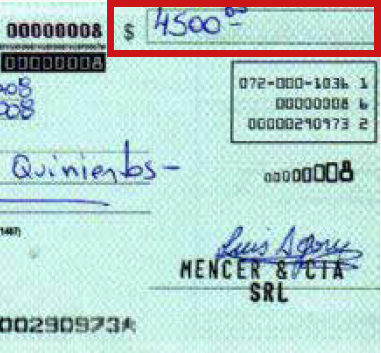 00000008 $ 4500 00
00000008
008
008
072-000-1036 1
00000008 6
00000290973 2
Quinientos-
00000008
1487)
MENCER & CIA
SRL
00290973A